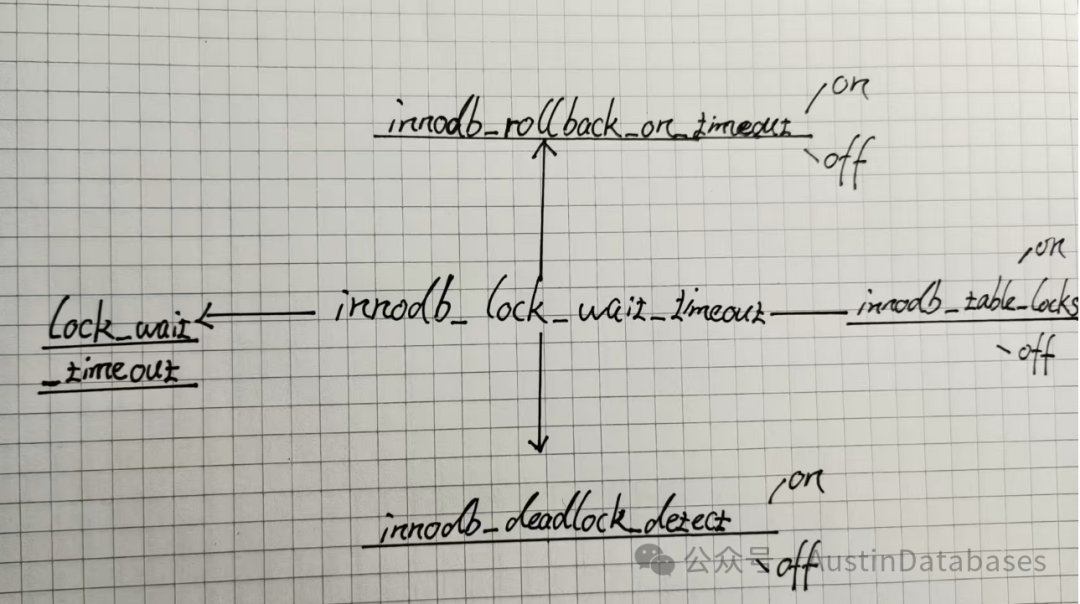 on
innodb_rollback_on_timeout
off
on
lock_wait
_timeout
innodb_lock_wait_timeout
innodb_table_locks
off
on
innodb_deadlock_detect
off
公众号 · AustinDatabases